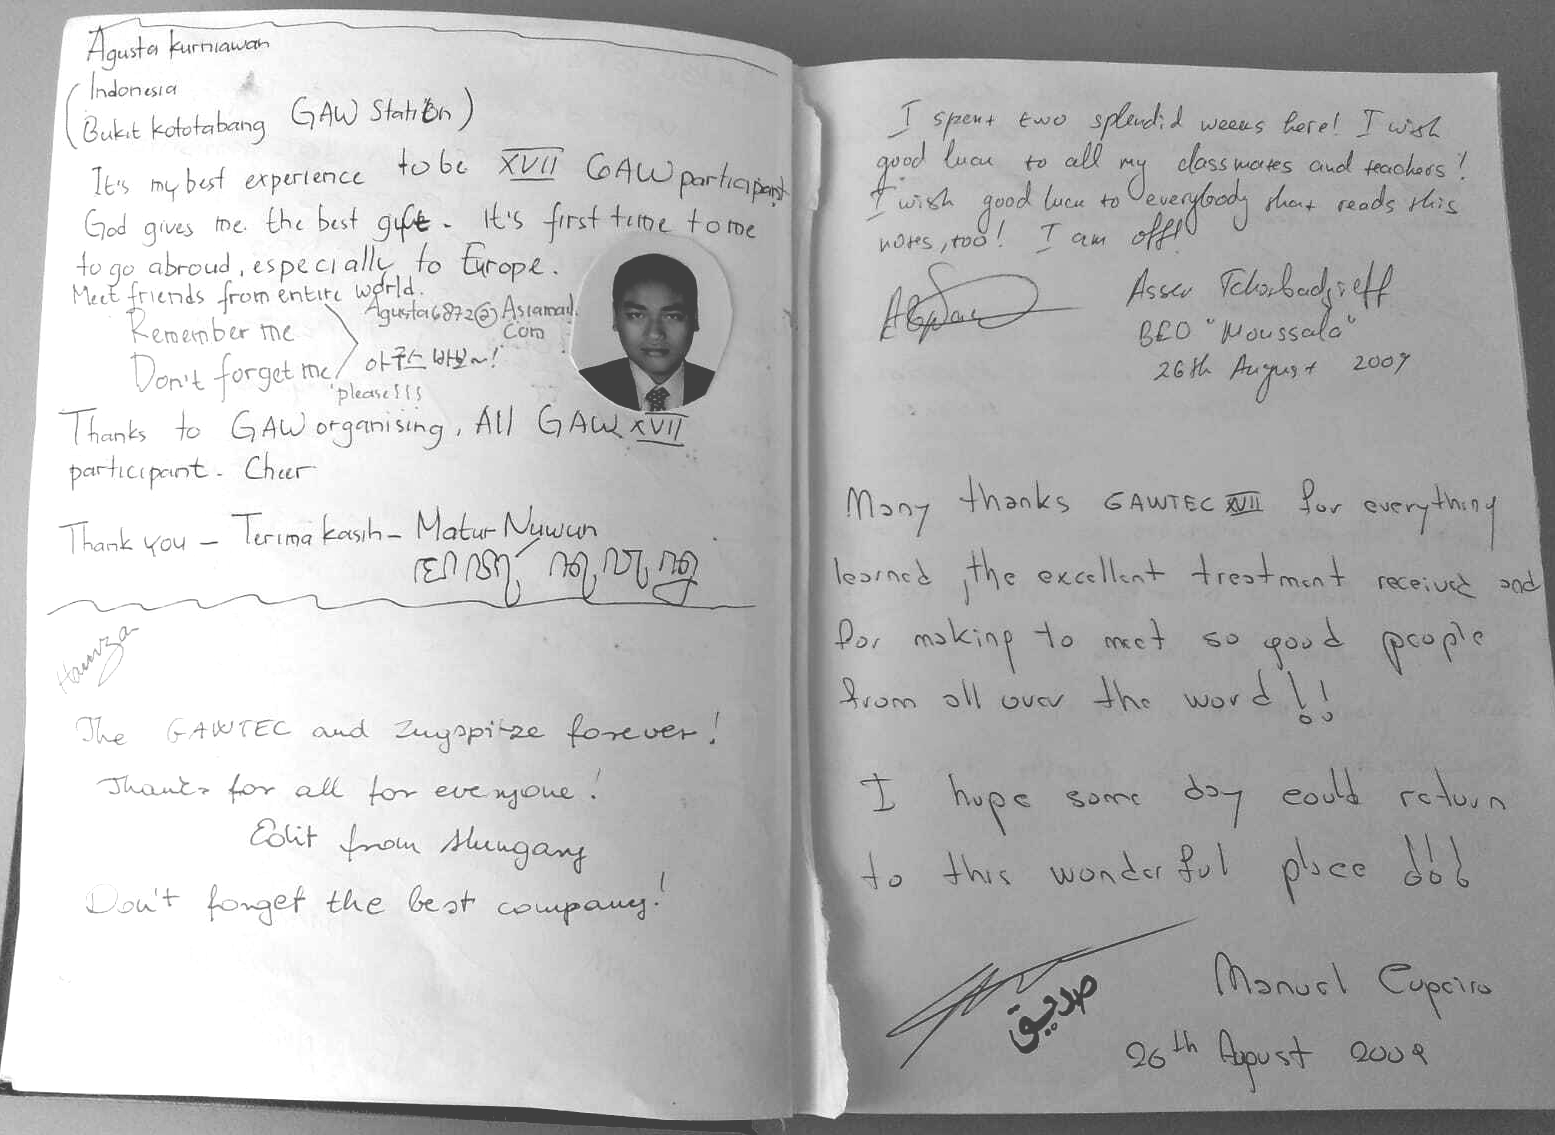 Agusta Kurniawan
(Indonesia
Bukit kototabang GAW Station)
It's my best experience to be XVII GAW participant
God gives me the best gift. It's first time to me
to go abroud, especially to Europe.
Meet friends from entire world.
Remember me
Don't forget me
please!!!
Agusta6872@Asiamail.
Com
아구스 바보~!
Thanks to GAW organising, All GAW XVII
participant. Cheer
Thank you - Terima kasih - Matur Nuwun
Hamza
The GAWTEC and Zugspitze forever!
Thanks for all for everyone!
Edit from Hungary
Don't forget the best company!
I spent two splendid weeks here! I wish
good luck to all my classmates and teachers!
I wish good luck to everybody that reads this
notes, too! I am off!
Assen Tchorbadjieff
BEO "Moussala"
26th August 2009
Many thanks GAWTEC XVII for everything
learned, the excellent treatment received and
for making to meet so good people
from all over the word!!
I hope some day could return
to this wonderful place!!!
صديق
Manuel Cupeiro
26th August 2009